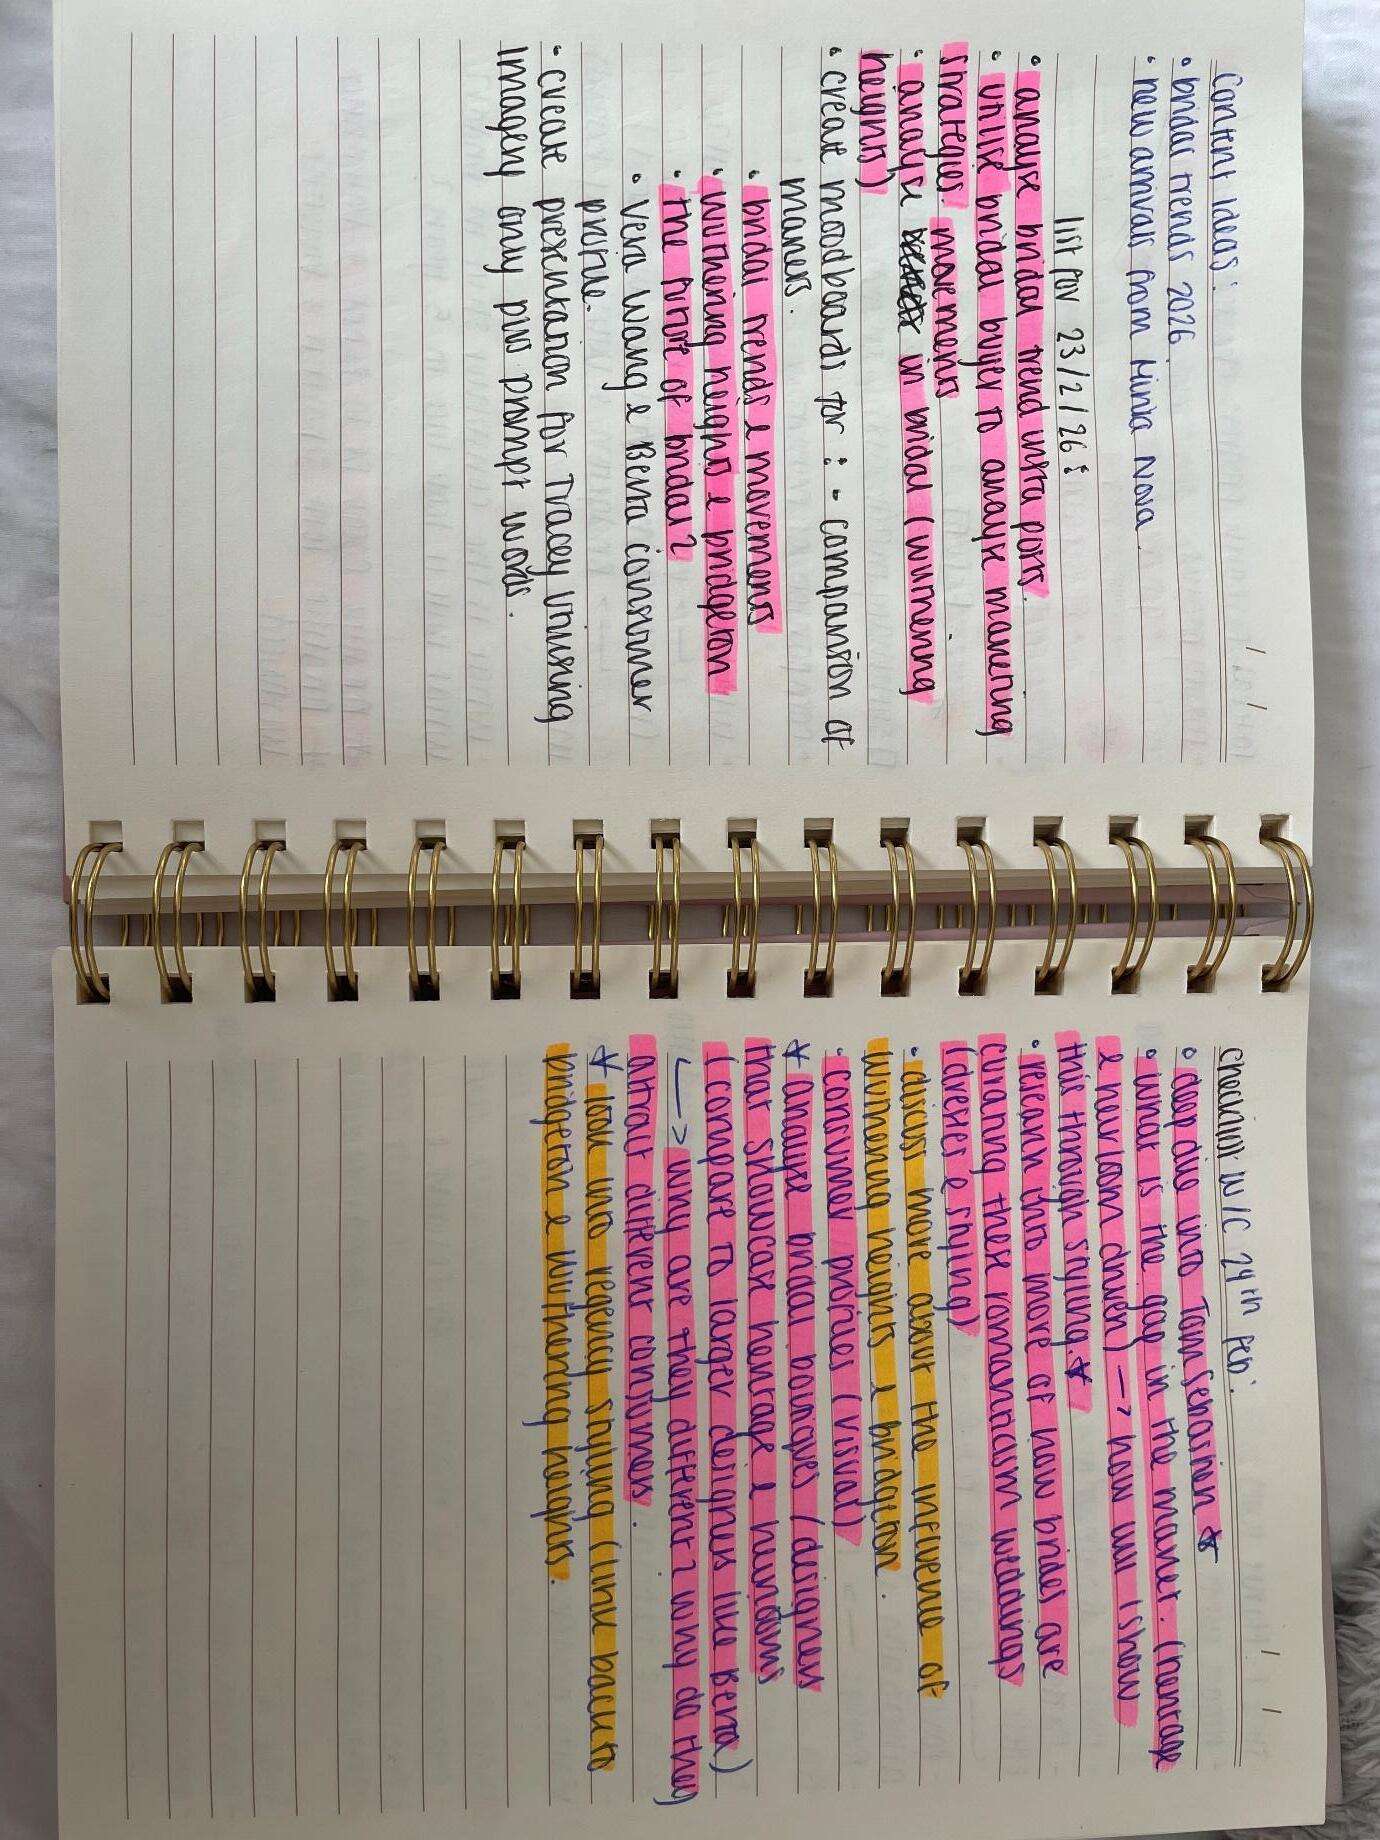 Content Ideas:
• bridal trends 2026.
• new arrivals from Minka Nova.
list for 23/2/26:
• analyse bridal trend insta posts.
• utilise bridal buyer to analyse marketing
strategies. movements
• analyse in bridal (wuthering
heights)
• create moodboards for : • comparison of
markets.
• bridal trends & movements
• wuthering heights & bridgerton
• the future of bridal?
• Vera Wang & Berta consumer
profile.
• create presentation for Tracey utilising
imagery only plus prompt words.
Checklist W/C 24th Feb:
• deep dive into Tom Sebastien ☆
• what is the gap in the market. (heritage
& heirloom driven) —> how will I show
this through styling. ☆
• research into more of how brides are
curating these romanticism weddings
(dresses & styling)
• discuss more about the influence of
wuthering heights & bridgerton.
• consumer profiles (visual)
☆ analyse bridal boutiques / designers
that showcase heritage & heirlooms
(compare to larger designers like Berta)
↳ why are they different? why do they
attract different consumers.
☆ look into regency styling (link back to
bridgerton & wuthering heights.